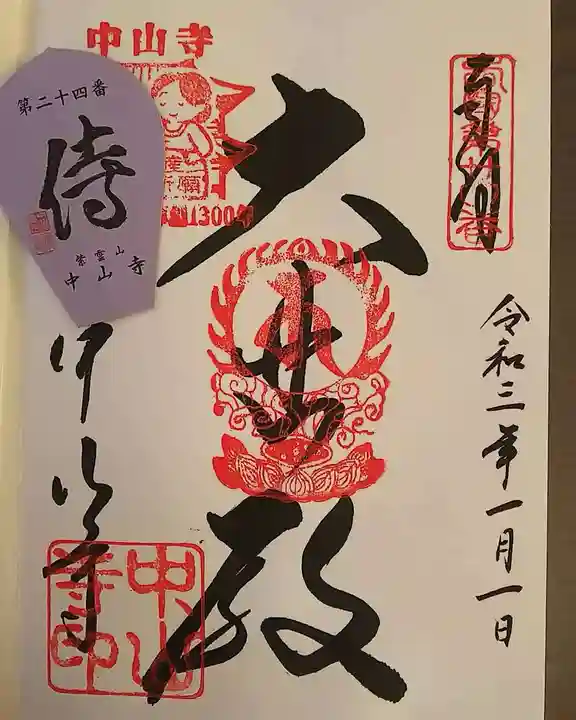 奉拝
令和三年一月一日
大悲殿
中山寺
中山寺
1300年
中山寺印
第二十四番
傳
紫雲山
中山寺